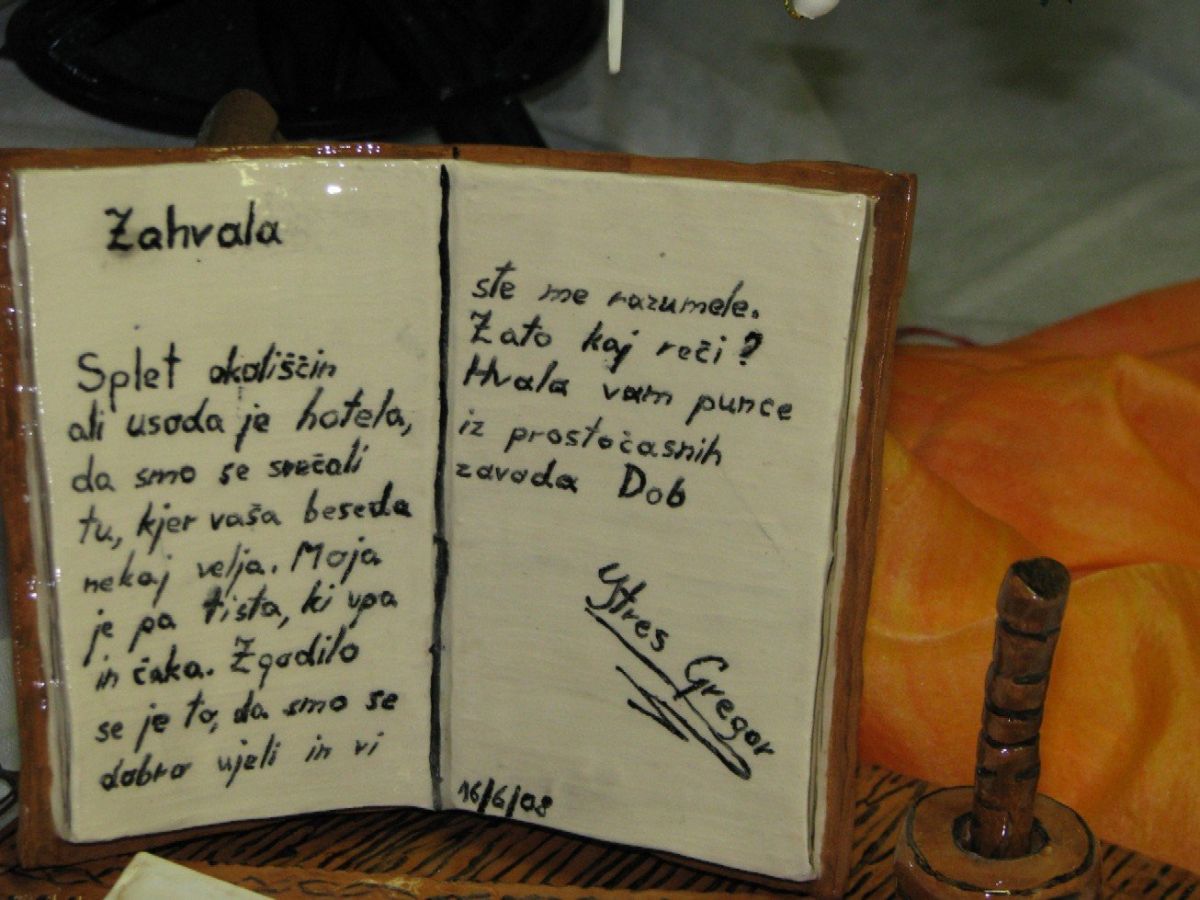 Zahvala
Splet okoliščin
ali usoda je hotela,
da smo se srečali
tu, kjer vaša beseda
nekaj velja. Moja
je pa tista, ki upa
in čaka. Zgodilo
se je to, da smo se
dobro ujeli in vi
ste me razumele.
Zato kaj reči?
Hvala vam punce
iz prostočasnih
zavoda Dob
Ytres Gregor
16/6/08